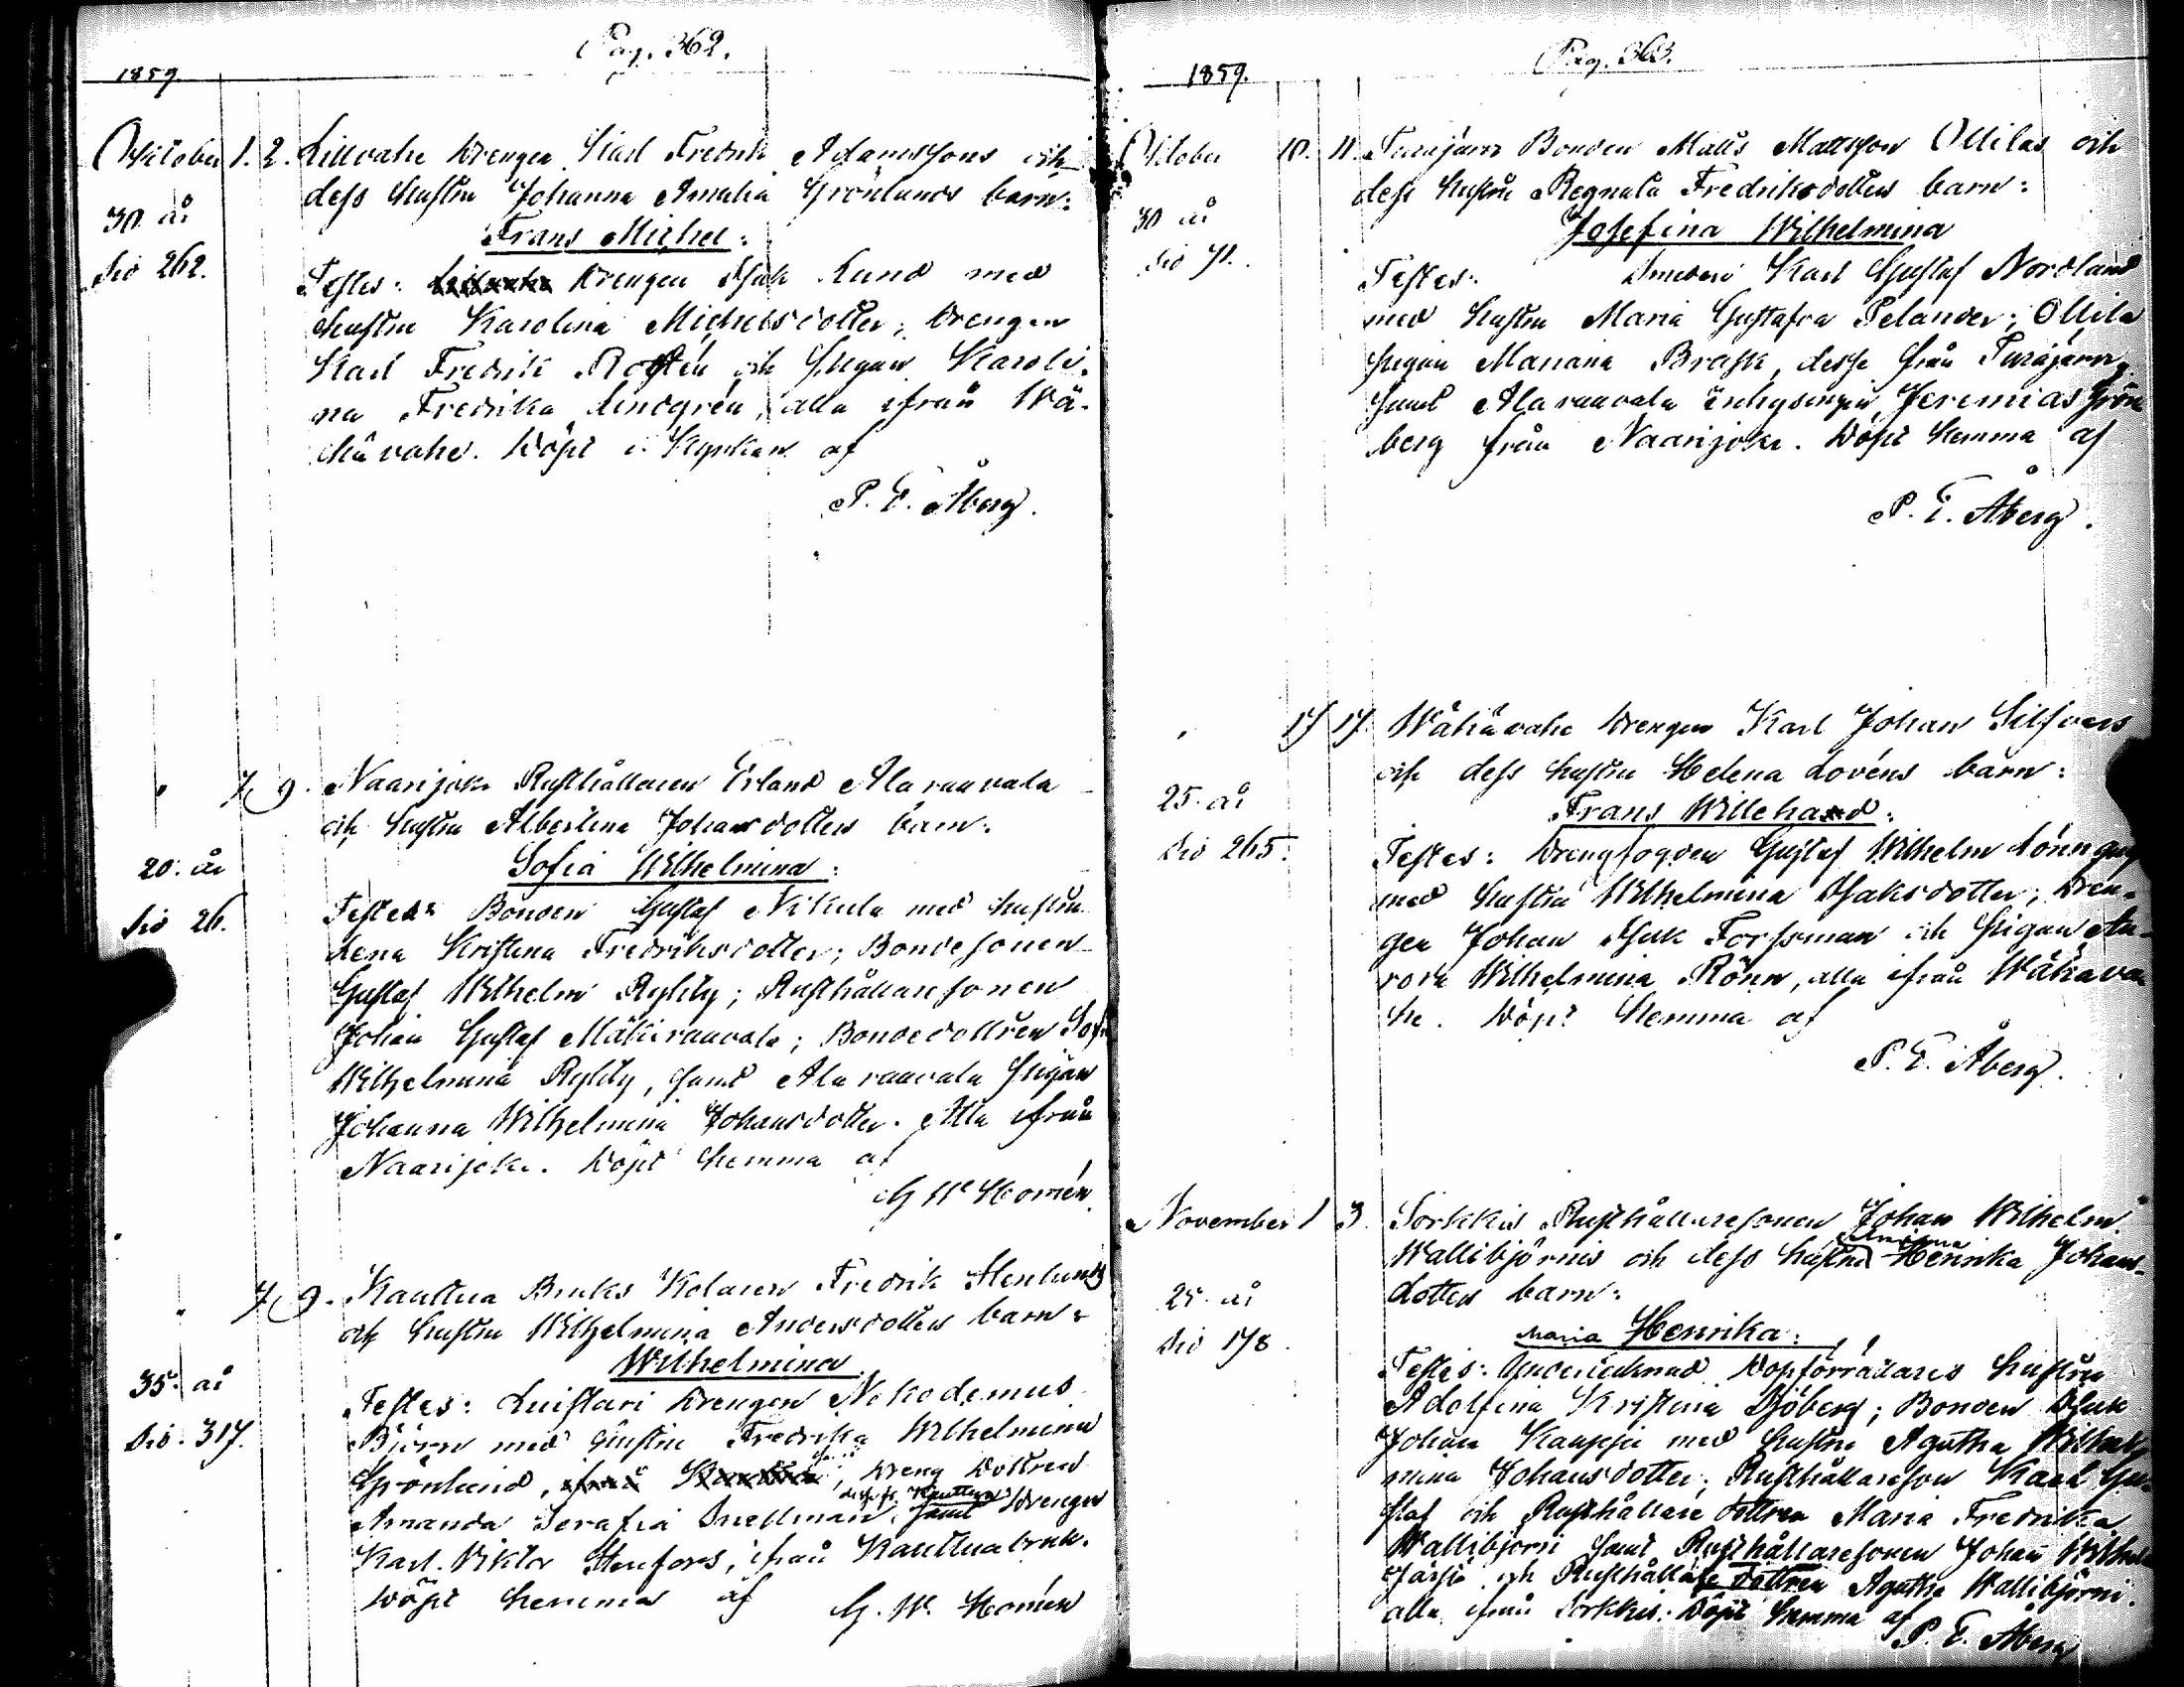 Pag. 362.
1859.
October 1. 2. Lillvahe Drengen Karl Fredrik Adamssons och
dess hustru Johanna Amalia Grönlunds barn:
30 år
Frans Michel.
Sid 262.
Testes: Drengen Isak Lund med
hustru Karolina Michelsdotter; Drengen
Karl Fredrik Rostén och Pigan Karoli-
na Fredrika Lindgrén, alla ifrån Wä-
hävahe. Döpt i Kyrkan af
P. E. Åberg.
" 7. 9. Naarijoki Rusthållaren Erland Alaraavala
och hustru Albertina Johansdotters barn:
20 år
Sofia Wilhelmina.
Sid 26.
Testes: Bonden Gustaf Nikula med hustru
Lena Kristina Fredriksdotter; Bondesonen
Gustaf Wilhelm Ryhty; Rusthållaresonen
Johan Gustaf Mäkiraavala; Bondedottren Sofia
Wilhelmina Ryhty, samt Alaraavala Pigan
Johanna Wilhelmina Johansdotter. Alla ifrån
Naarijoki. Döpt hemma af
G W Homén.
" 7. 9. Kauttua Bruks Kolaren Fredrik Stenlunds
och hustru Wilhelmina Andersdotters barn:
Wilhelmina
35 år
Sid. 317.
Testes: Luistari Drengen Nikodemus
Björn med hustru Fredrika Wilhelmina
Grönlund, ifrån Kauttua, Dreng Dottren
Amanda Serafia Snellman, samt Drengen
Karl Viktor Stenfors, ifrån Kauttua bruk.
Döpt hemma af
G. W. Homén
Pag. 363.
1859.
October 10. 11. Turajärvi Bonden Matts Mattsson Ollilas och
dess hustru Regnala Fredriksdotters barn:
30 år
Josefina Wilhelmina
Sid 71.
Testes: Smeden Karl Gustaf Nordlund
med hustru Maria Gustafva Pelander; Ollila
Pigan Mariana Brask, dessa från Turajärvi,
samt Alaraavala inhysingen Jeremias Grön
berg från Naarijoki. Döpt hemma af
P. E. Åberg.
" 17 17. Wähävahe Drengen Karl Johan Silfvers
och dess hustru Helena Lovéns barn:
25 år
Frans Willehard.
Sid 265.
Testes: Drengfogden Gustaf Wilhelm Lönngren
med hustru Wilhelmina Isaksdotter; Dren-
gen Johan Isak Forssman och Pigan Au-
rora Wilhelmina Rönn, alla ifrån Wähäva
he. Döpt hemma af
P. E. Åberg.
November 1 3. Sorkkis Rusthållaresonen Johan Wilhelm
Wallibjörnis och dess hustru Henrika Johans-
dotters barn:
25 år
Maria Henrika:
Sid 178.
Testes: Undertecknad Dopförrättares hustru
Adolfina Kristina Sjöberg; Bonden Isak
Johan Kauppi med hustru Agatha Wilhel
mina Johansdotter; Rusthållareson Karl Gu-
staf och Rusthållare dottren Maria Fredrika
Wallibjörni samt Rusthållaresonen Johan Wilhelm
och Rusthållare dottren Agatha Wallibjörni.
alla ifrån Sorkkis. Döpt hemma af
P. E. Åberg